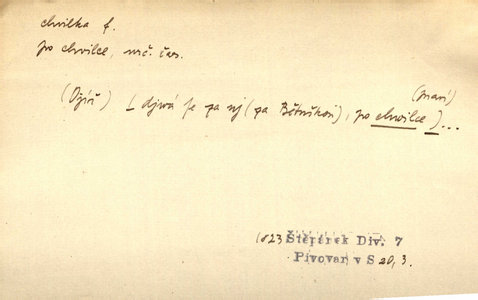 chvilka f.
po chvilce, urč. čas.
(praví)
(Ogíř) [ djwá se za nj (za Bětuškou), po chwilce )...
1823 Štěpánek Div. 7
Pivovar v S 20, 3.